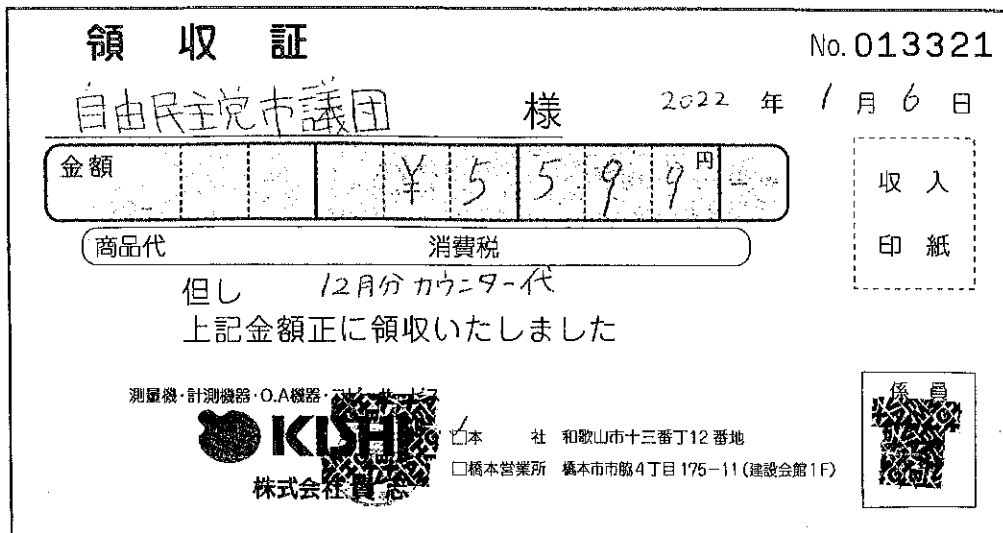 領収証
No. 013321
自由民主党市議団 様
2022 年 1 月 6 日
金額 ¥5599円-
収入
印紙
商品代 消費税
但し 12月分カウンター代
上記金額正に領収いたしました
測量機・計測機器・O.A機器・コピーサービス
KISHI
株式会社貴志
係員
本社 和歌山市十三番丁12番地
□橋本営業所 橋本市市脇4丁目175-11(建設会館1F)